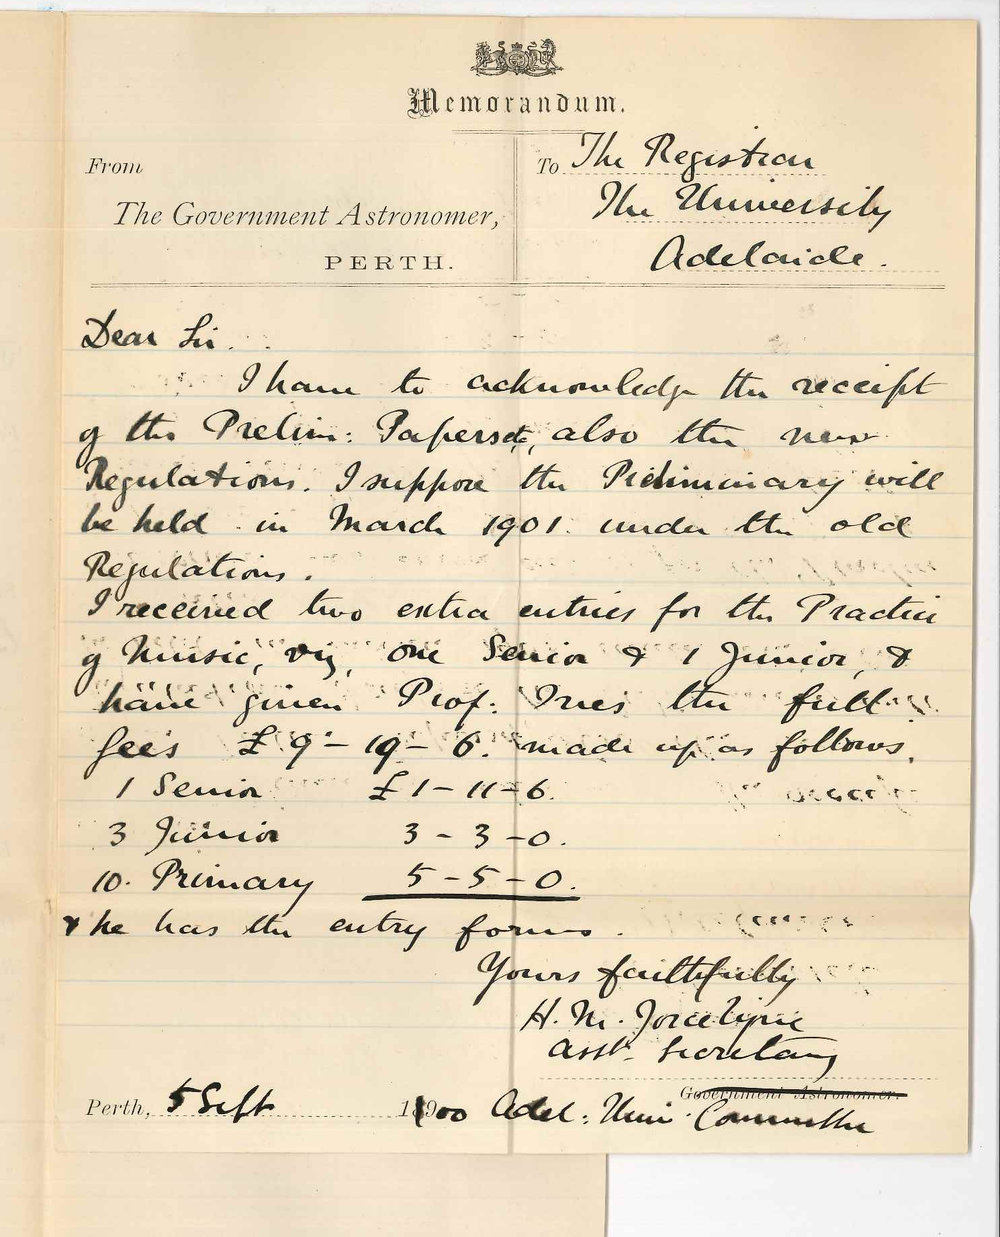 Memorandum.
From
The Government Astronomer,
PERTH.
To The Registrar
The University
Adelaide.
Dear Sir.
I have to acknowledge the receipt
of the Prelim: Papers etc, also the new
Regulations. I suppose the Preliminary will
be held in March 1901 under the old
Regulations.
I received two extra entries for the Practice
of Music, viz, one Senior & 1 Junior, &
have given Prof: Ives the full
fees £9-19-6. made up as follows.
1 Senior £1-11-6.
3 Junior 3-3-0.
10. Primary 5-5-0.
& he has the entry forms.
Yours faithfully
H. M. Jocelyne
Asst. Secretary
Government Astronomer.
Perth, 5 Sept 1900 Adel: Univ. Committee